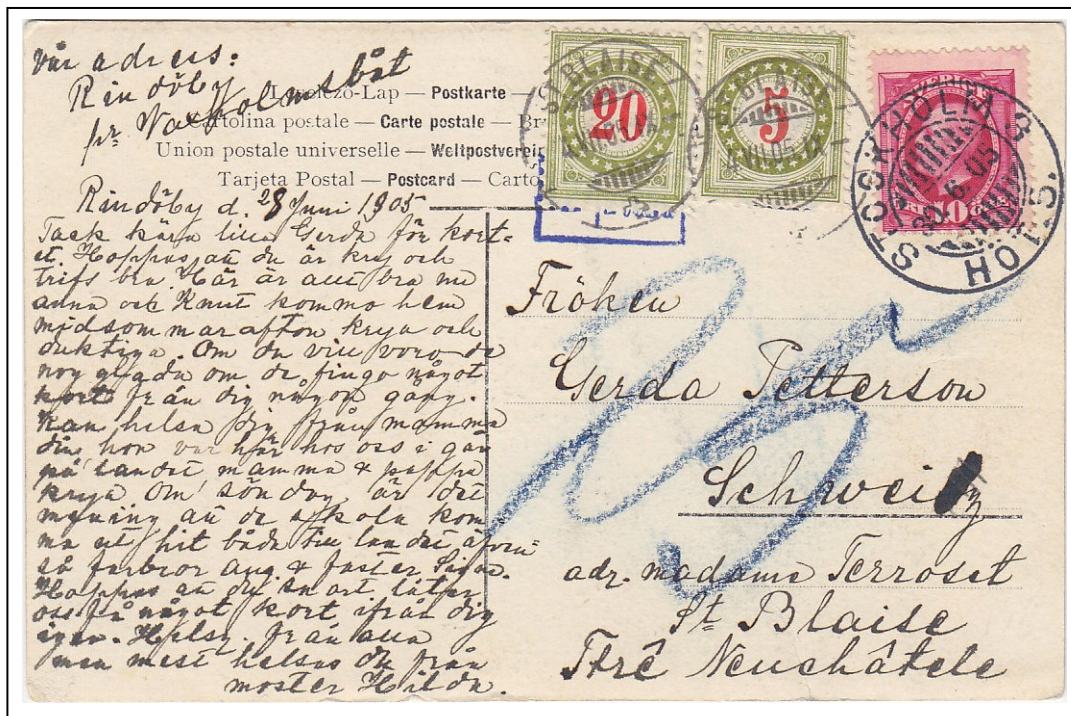 vår adress:
Rindöby
pr. Vaxholmsbåt
Levelező-Lap — Postkarte —
Cartolina postale — Carte postale — Br
Union postale universelle — Weltpostverein
Tarjeta Postal — Postcard — Carto
ST. BLAISE
4.VII.05
20
ST. BLAISE
4.VII.05
5
SVERIGE
10
STOCKHOLM 3.
30 6 05
Rindöby d. 28 Juni 1905
Tack kära lilla Gerda för kort-
et. Hoppas att du är kry och
trifs bra. Här är allt bra nu
anna och Knut kommo hem
midsommarafton krya och
duktiga. Om du vill voro de
nog glada om de fingo något
kort från dig någon gång.
Kan helsa dig från mamma
din hon var här hos oss i går
på landet mamma & pappa
krya om söndag är det
mening att de skola kom
ma ut hit båda till landet äfven
så farbror aug & faster
Hoppas att du snart låter
oss få något kort ifrån dig
igen. Helsn. från alla
men mest helsas du från
moster Hilda.
Fröken
Gerda Petterson
Schweiz
adr. madame Terroset
St Blaise
Neuchâtele
25